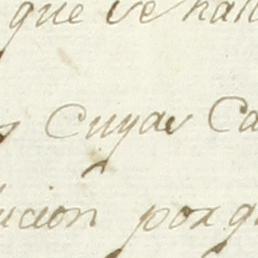 que se hall
Cuyas Ca
ucion por q